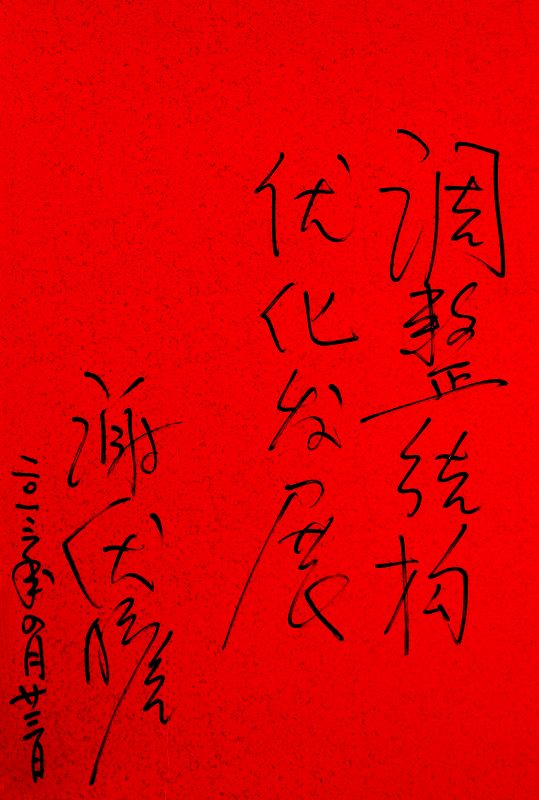 调整结构
优化发展
谢伏瞻
二〇一三年四月廿三日